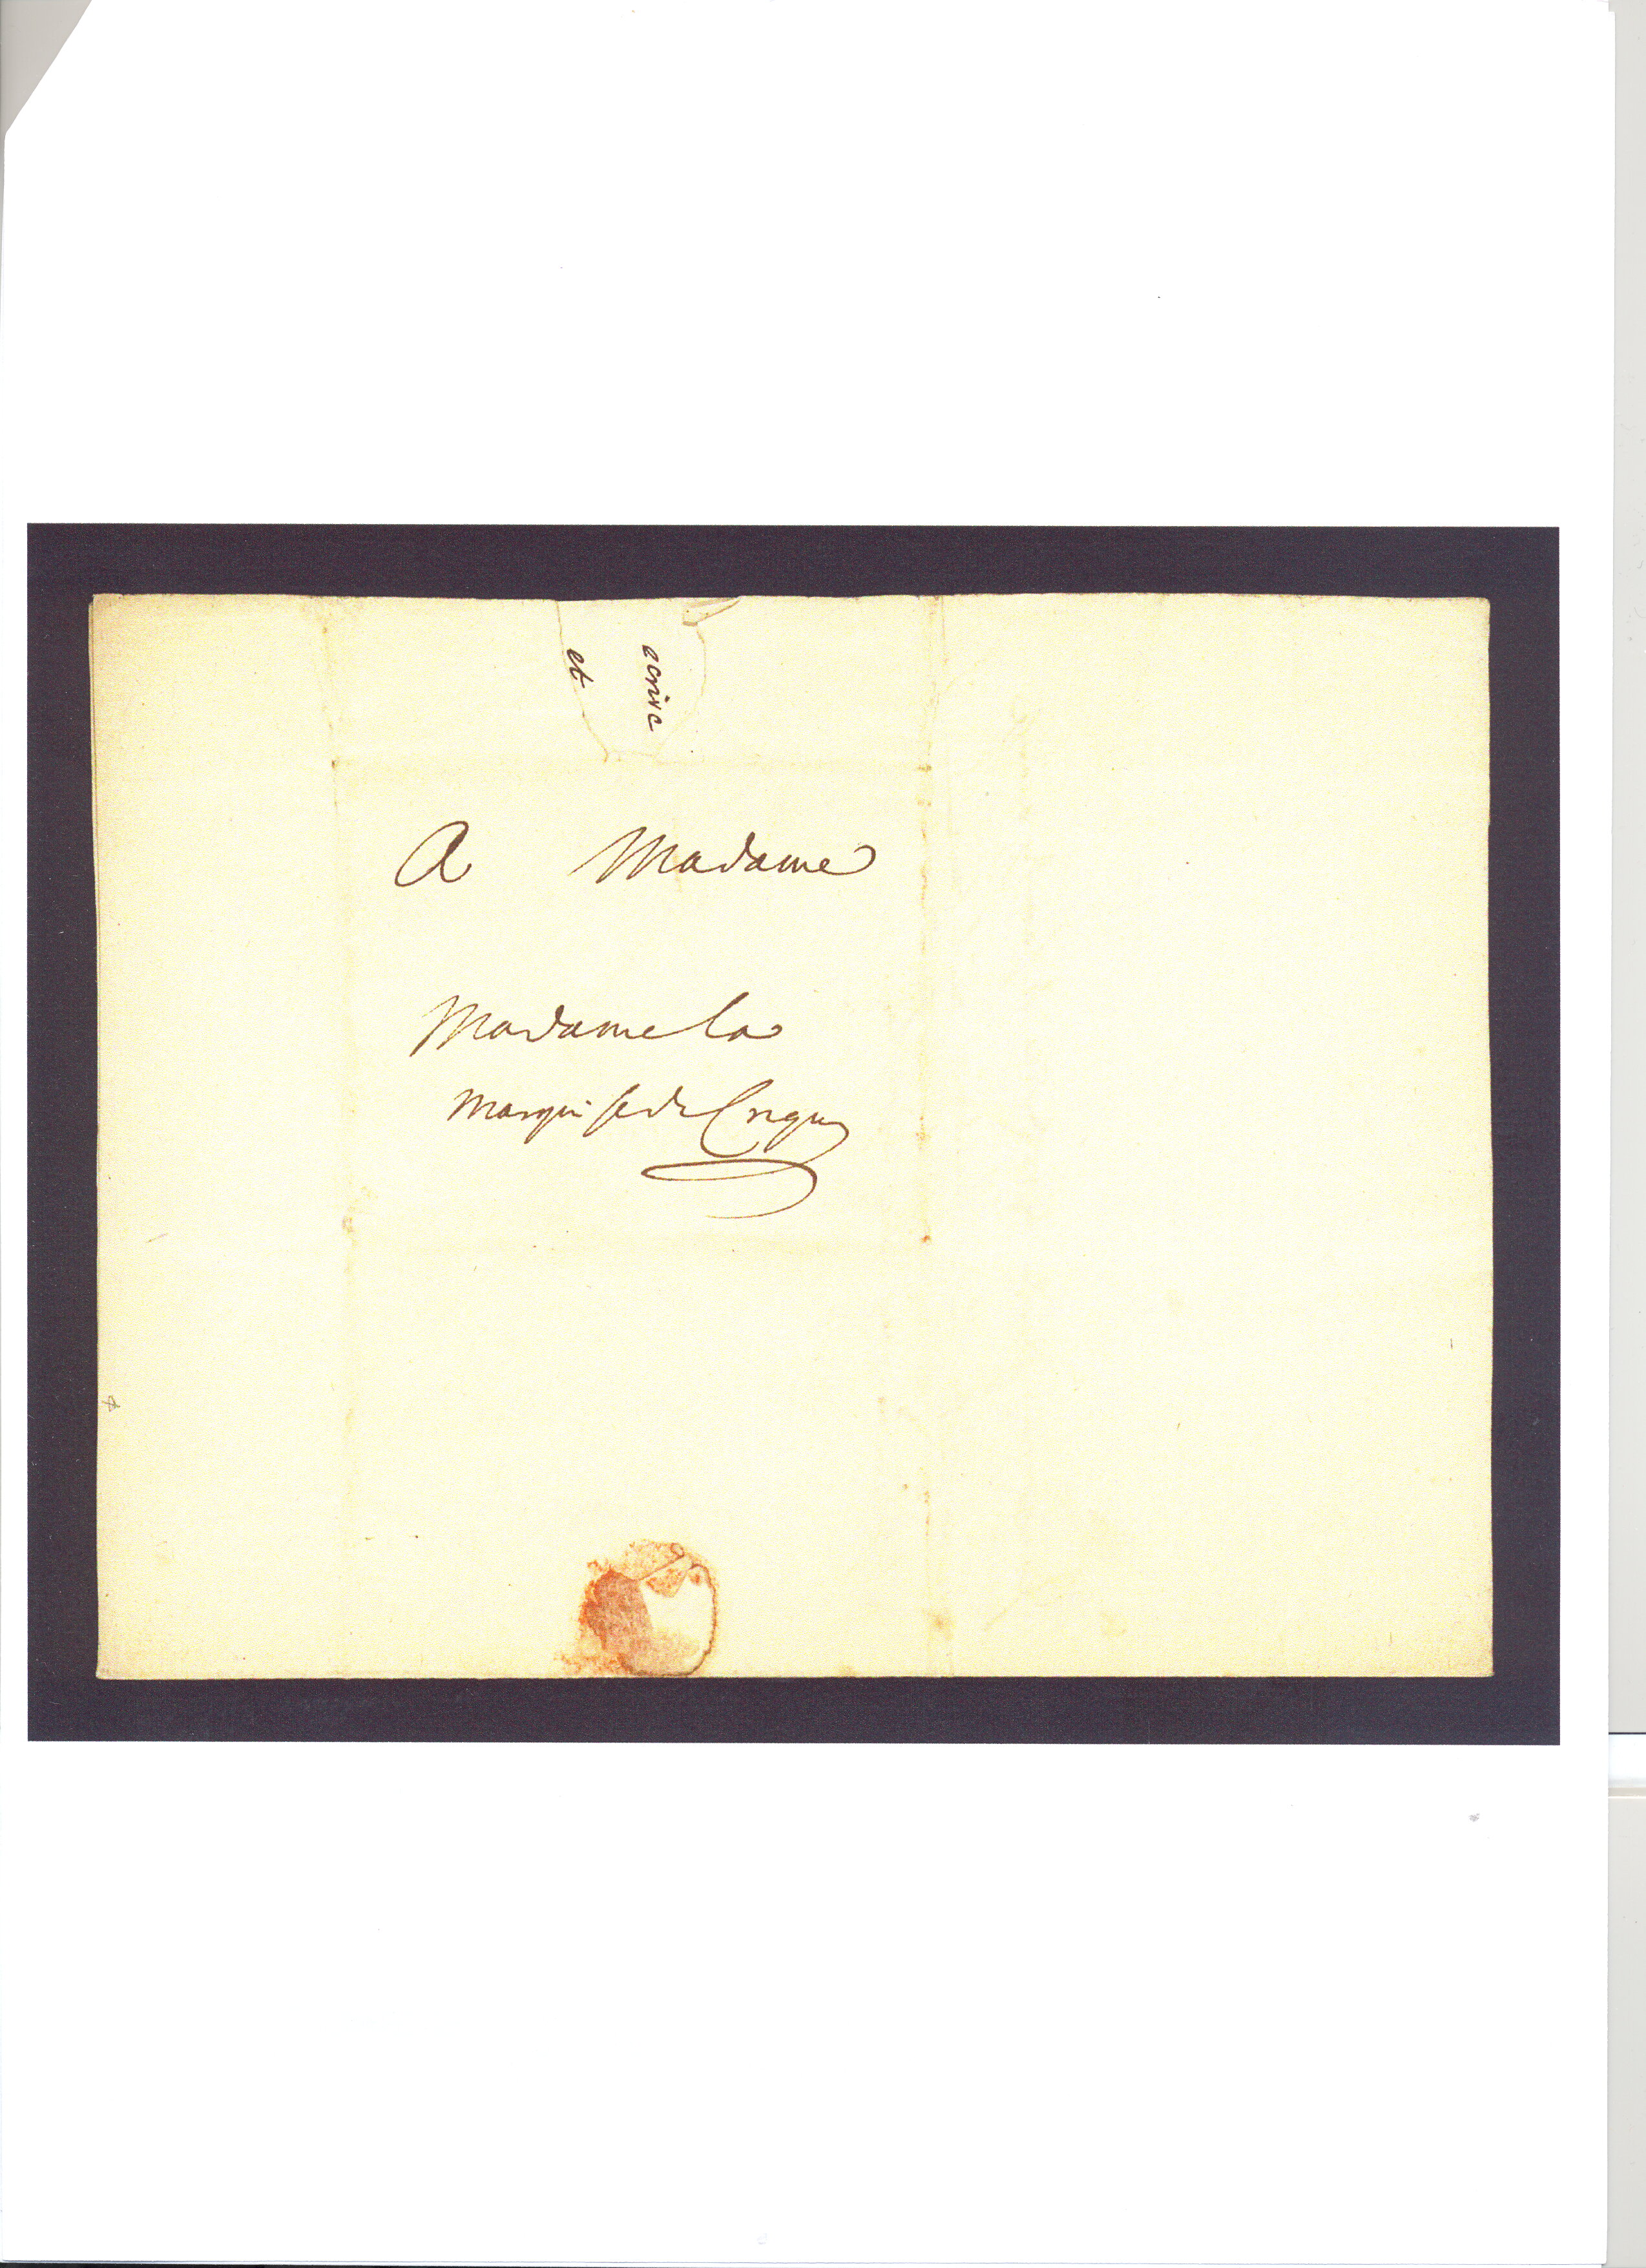 ecrire
et
A Madame
Madame la
marquise de Crequy